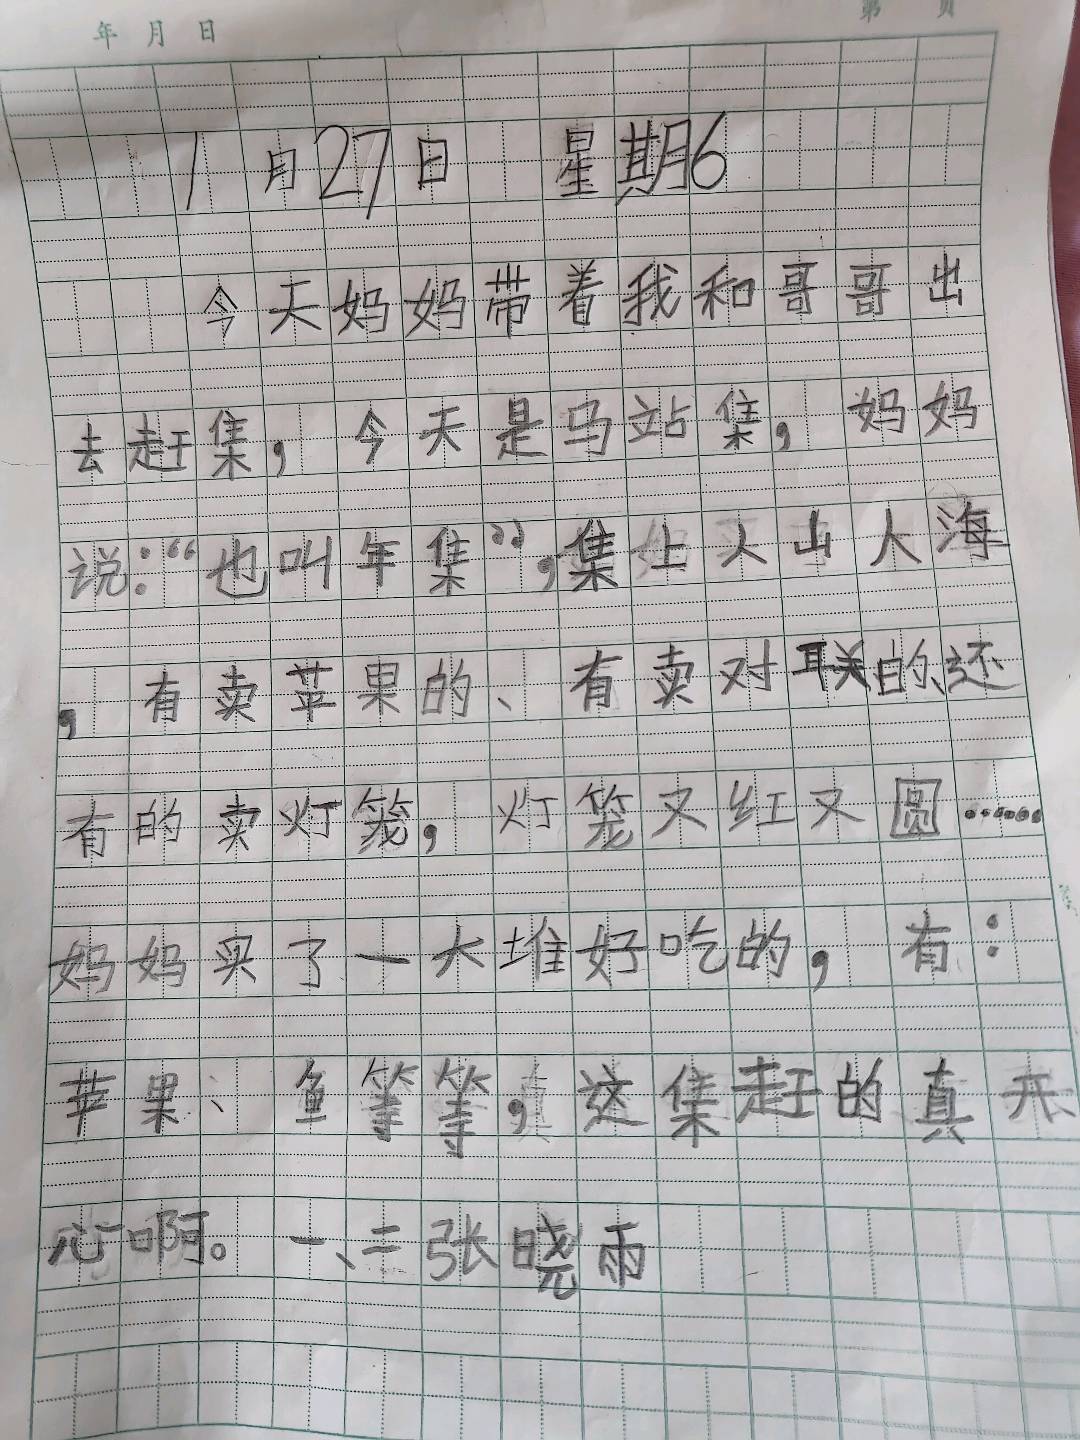 年 月 日 第 页
1月27日 星期6
今天妈妈带着我和哥哥出
去赶集，今天是马站集，妈妈
说：“也叫年集”，集上人山人海
，有卖苹果的、有卖对联的、还
有的卖灯笼，灯笼又红又圆……
妈妈买了一大堆好吃的，有：
苹果、鱼等等，这集赶的真开
心啊。一、二张晓雨